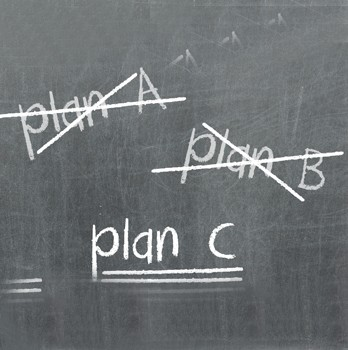 plan A
plan B
plan C